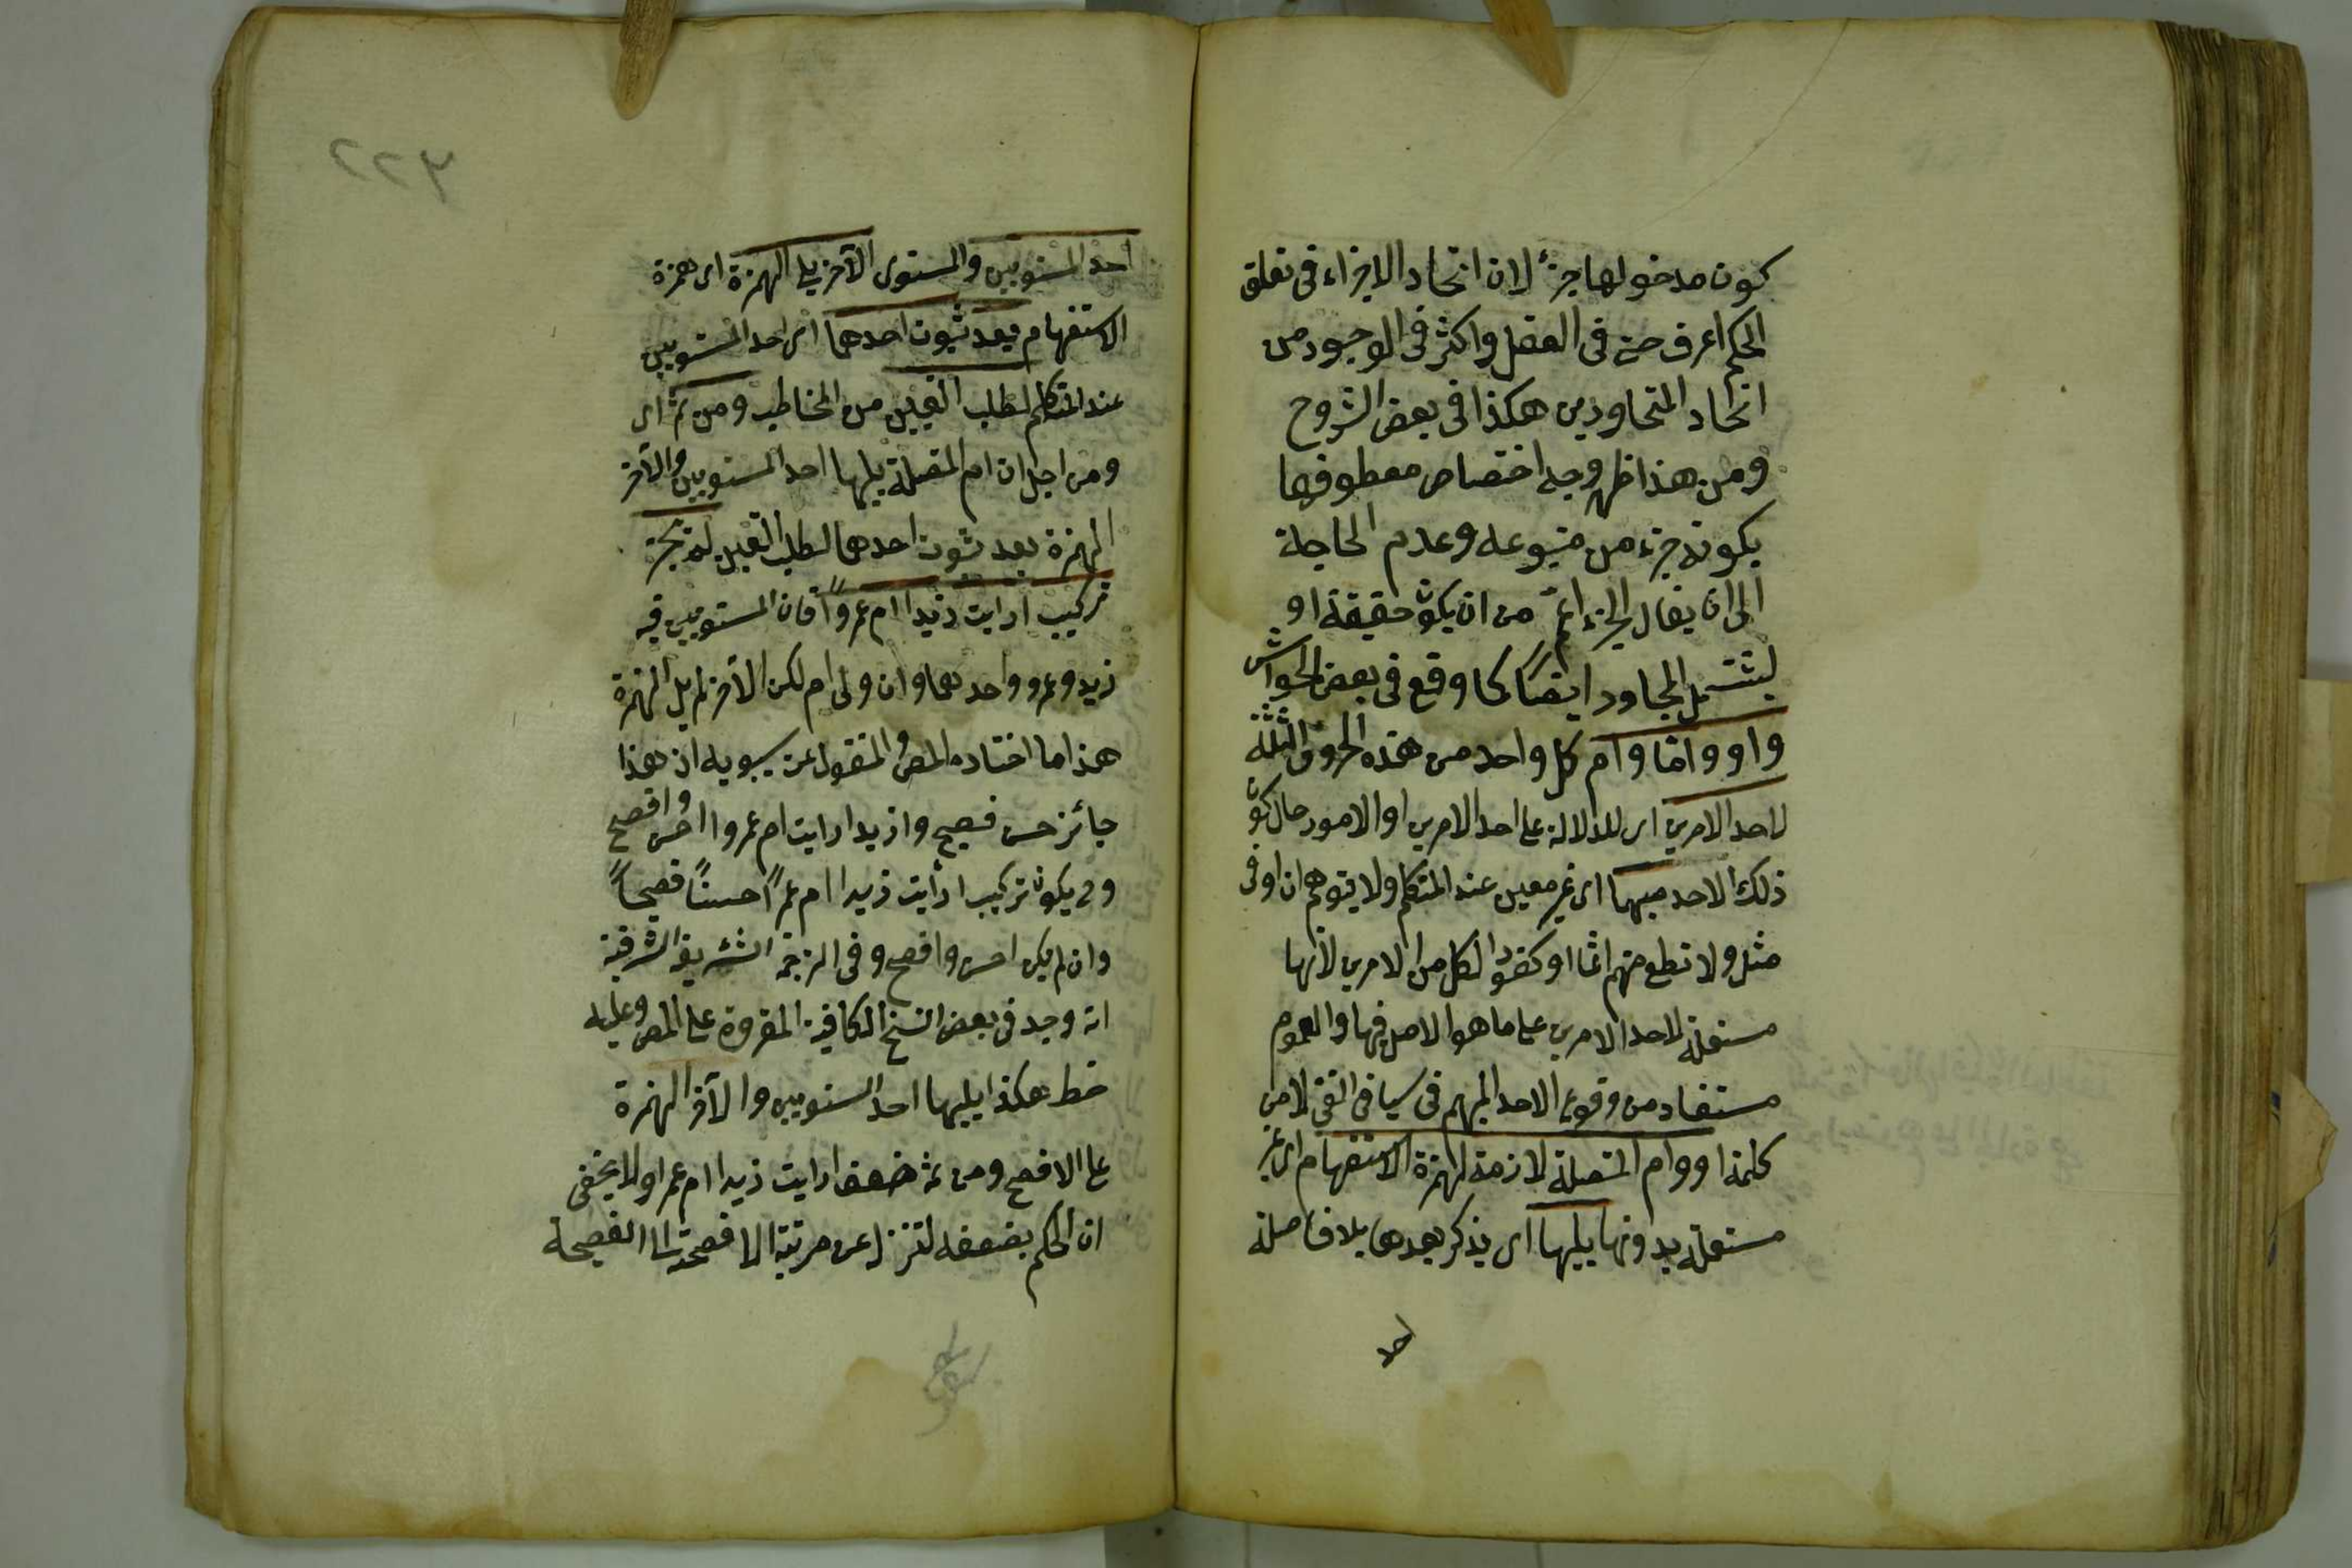 كون مدخولها جزءً لان اتحاد الاجزاء فى تعلق
الحكم اعرف منه فى العقل واكثر فى الوجود من
اتحاد المتجاورين هكذا فى بعض الشروح
ومن هذا ظهر وجه اختصاص معطوفها
بكونه جزء من متبوعه وعدم الحاجة
الى ان يقال الجزء اعمّ من ان يكون حقيقة او
ليشتمل المجاور ايضًا كما وقع فى بعض الحواشى
واو واما وام كل واحد من هذه الحروف الثلثة
لاحد الامرين اى للدلالة على احد الامرين او الامور حال كون
ذلك الاحد مبهما اى غير معين عند المتكلم ولا يتوهم ان او فى
مثل ولا تطع منهم اثما او كفورا لكل من الامرين لانها
مستعملة لاحد الامرين على ما هو الاصل فيها والعموم
مستفاد من وقوع الاحد المبهم فى سياق النفى لا من
كلمة او وام المتصلة لازمة لهمزة الاستفهام اى غير
مستعملة بدونها يليها اى يذكر بعدها بلا فاصلة
احد
٢٢٢
احد المستويين والمستوى الآخر يلى الهمزة اى همزة
الاستفهام بعد ثبوت احدهما اى احد المستويين
عند المتكلم لطلب التعيين من المخاطب ومن ثم اى
ومن اجل ان ام المتصلة يليها احد المستويين والآخر
الهمزة بعد ثبوت احدهما لطلب التعيين لم يجز
تركيب ارايت زيدا ام عمروًا فان المستويين فيه
زيد وعمرو واحدهما وان ولى ام لكن الآخر لم يل الهمزة
هذا ما اختاره المص والمنقول عن سيبويه ان هذا
جائز حسن فصيح وازيدا ارايت ام عمروا احسن وافصح
وح يكون تركيب ارأيت زيدا ام عمرًا حسنًا فصيحًا
وان لم يكن احسن وافصح وفى الترجمة الشريفة الشرفية
انه وجد فى بعض النسخ الكافية المقروة على المص وعليه
خط هكذا يليها احد المستويين والآخر الهمزة
على الافصح ومن ثم ضعف ارايت زيدا ام عمرا ولا يخفى
ان الحكم بضعفه لتنزل عن مرتبة الافصحية الى الفصيحة